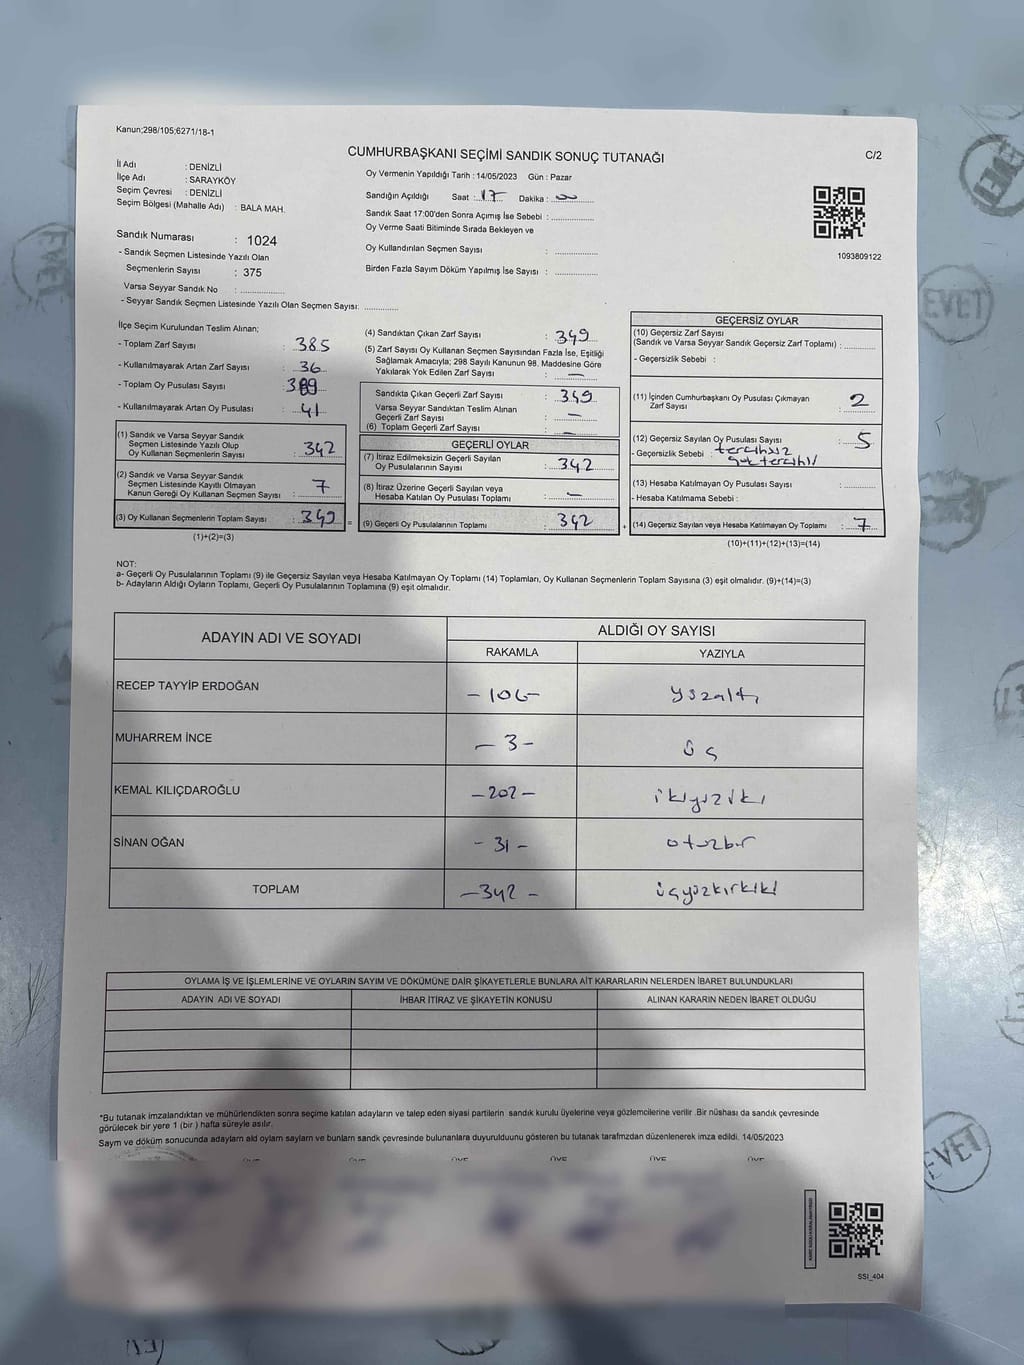 Kanun;298/105;6271/18-1
CUMHURBAŞKANI SEÇİMİ SANDIK SONUÇ TUTANAĞI
C/2
İl Adı : DENİZLİ
İlçe Adı : SARAYKÖY
Seçim Çevresi : DENİZLİ
Seçim Bölgesi (Mahalle Adı) : BALA MAH.
Sandık Numarası : 1024
- Sandık Seçmen Listesinde Yazılı Olan
Seçmenlerin Sayısı : 375
Varsa Seyyar Sandık No :
- Seyyar Sandık Seçmen Listesinde Yazılı Olan Seçmen Sayısı:
Oy Vermenin Yapıldığı Tarih : 14/05/2023 Gün : Pazar
Sandığın Açıldığı Saat : 17 Dakika : 00
Sandık Saat 17:00'den Sonra Açımış İse Sebebi :
Oy Verme Saati Bitiminde Sırada Bekleyen ve
Oy Kullandırılan Seçmen Sayısı :
Birden Fazla Sayım Döküm Yapılmış İse Sayısı :
1093809122
İlçe Seçim Kurulundan Teslim Alınan;
- Toplam Zarf Sayısı : 385
- Kullanılmayarak Artan Zarf Sayısı : 36
- Toplam Oy Pusulası Sayısı :
- Kullanılmayarak Artan Oy Pusulası : 41
(1) Sandık ve Varsa Seyyar Sandık
Seçmen Listesinde Yazılı Olup
Oy Kullanan Seçmenlerin Sayısı : 342
(2) Sandık ve Varsa Seyyar Sandık
Seçmen Listesinde Kayıtlı Olmayan
Kanun Gereği Oy Kullanan Seçmen Sayısı : 7
(3) Oy Kullanan Seçmenlerin Toplam Sayısı : 349 =
(1)+(2)=(3)
(4) Sandıktan Çıkan Zarf Sayısı : 349
(5) Zarf Sayısı Oy Kullanan Seçmen Sayısından Fazla İse, Eşitliği
Sağlamak Amacıyla; 298 Sayılı Kanunun 98. Maddesine Göre
Yakılarak Yok Edilen Zarf Sayısı : —
Sandıkta Çıkan Geçerli Zarf Sayısı : 349
Varsa Seyyar Sandıktan Teslim Alınan
Geçerli Zarf Sayısı : —
(6) Toplam Geçerli Zarf Sayısı : —
GEÇERLİ OYLAR
(7) İtiraz Edilmeksizin Geçerli Sayılan
Oy Pusulalarının Sayısı : 342
(8) İtiraz Üzerine Geçerli Sayılan veya
Hesaba Katılan Oy Pusulası Toplamı : —
(9) Geçerli Oy Pusulalarının Toplamı : 342 +
GEÇERSİZ OYLAR
(10) Geçersiz Zarf Sayısı
(Sandık ve Varsa Seyyar Sandık Geçersiz Zarf Toplamı) :
- Geçersizlik Sebebi :
(11) İçinden Cumhurbaşkanı Oy Pusulası Çıkmayan
Zarf Sayısı : 2
(12) Geçersiz Sayılan Oy Pusulası Sayısı : 5
- Geçersizlik Sebebi : tercihsiz
(13) Hesaba Katılmayan Oy Pusulası Sayısı :
- Hesaba Katılmama Sebebi :
(14) Geçersiz Sayılan veya Hesaba Katılmayan Oy Toplamı : 7
(10)+(11)+(12)+(13)=(14)
NOT:
a- Geçerli Oy Pusulalarının Toplamı (9) ile Geçersiz Sayılan veya Hesaba Katılmayan Oy Toplamı (14) Toplamları, Oy Kullanan Seçmenlerin Toplam Sayısına (3) eşit olmalıdır. (9)+(14)=(3)
b- Adayların Aldığı Oyların Toplamı, Geçerli Oy Pusulalarının Toplamına (9) eşit olmalıdır.
ADAYIN ADI VE SOYADI
ALDIĞI OY SAYISI
RAKAMLA YAZIYLA
RECEP TAYYİP ERDOĞAN -106- yüzaltı
MUHARREM İNCE -3- üç
KEMAL KILIÇDAROĞLU -202- ikiyüziki
SİNAN OĞAN -31- otuzbir
TOPLAM -342- üçyüzkırkiki
OYLAMA İŞ VE İŞLEMLERİNE VE OYLARIN SAYIM VE DÖKÜMÜNE DAİR ŞİKAYETLERLE BUNLARA AİT KARARLARIN NELERDEN İBARET BULUNDUKLARI
ADAYIN ADI VE SOYADI İHBAR İTİRAZ VE ŞİKAYETİN KONUSU ALINAN KARARIN NEDEN İBARET OLDUĞU
*Bu tutanak imzalandıktan ve mühürlendikten sonra seçime katılan adayların ve talep eden siyasi partilerin sandık kurulu üyelerine veya gözlemcilerine verilir .Bir nüshası da sandık çevresinde
görülecek bir yere 1 (bir ) hafta süreyle asılır.
Sayım ve döküm sonucunda adayların ald oyların sayların ve bunların sandk çevresinde bulunanlara duyurulduunu gösteren bu tutanak tarafmzdan düzenlenerek imza edildi. 14/05/2023
ÜYE ÜYE ÜYE ÜYE ÜYE ÜYE
SSI_404
EVET
EVET
EVET